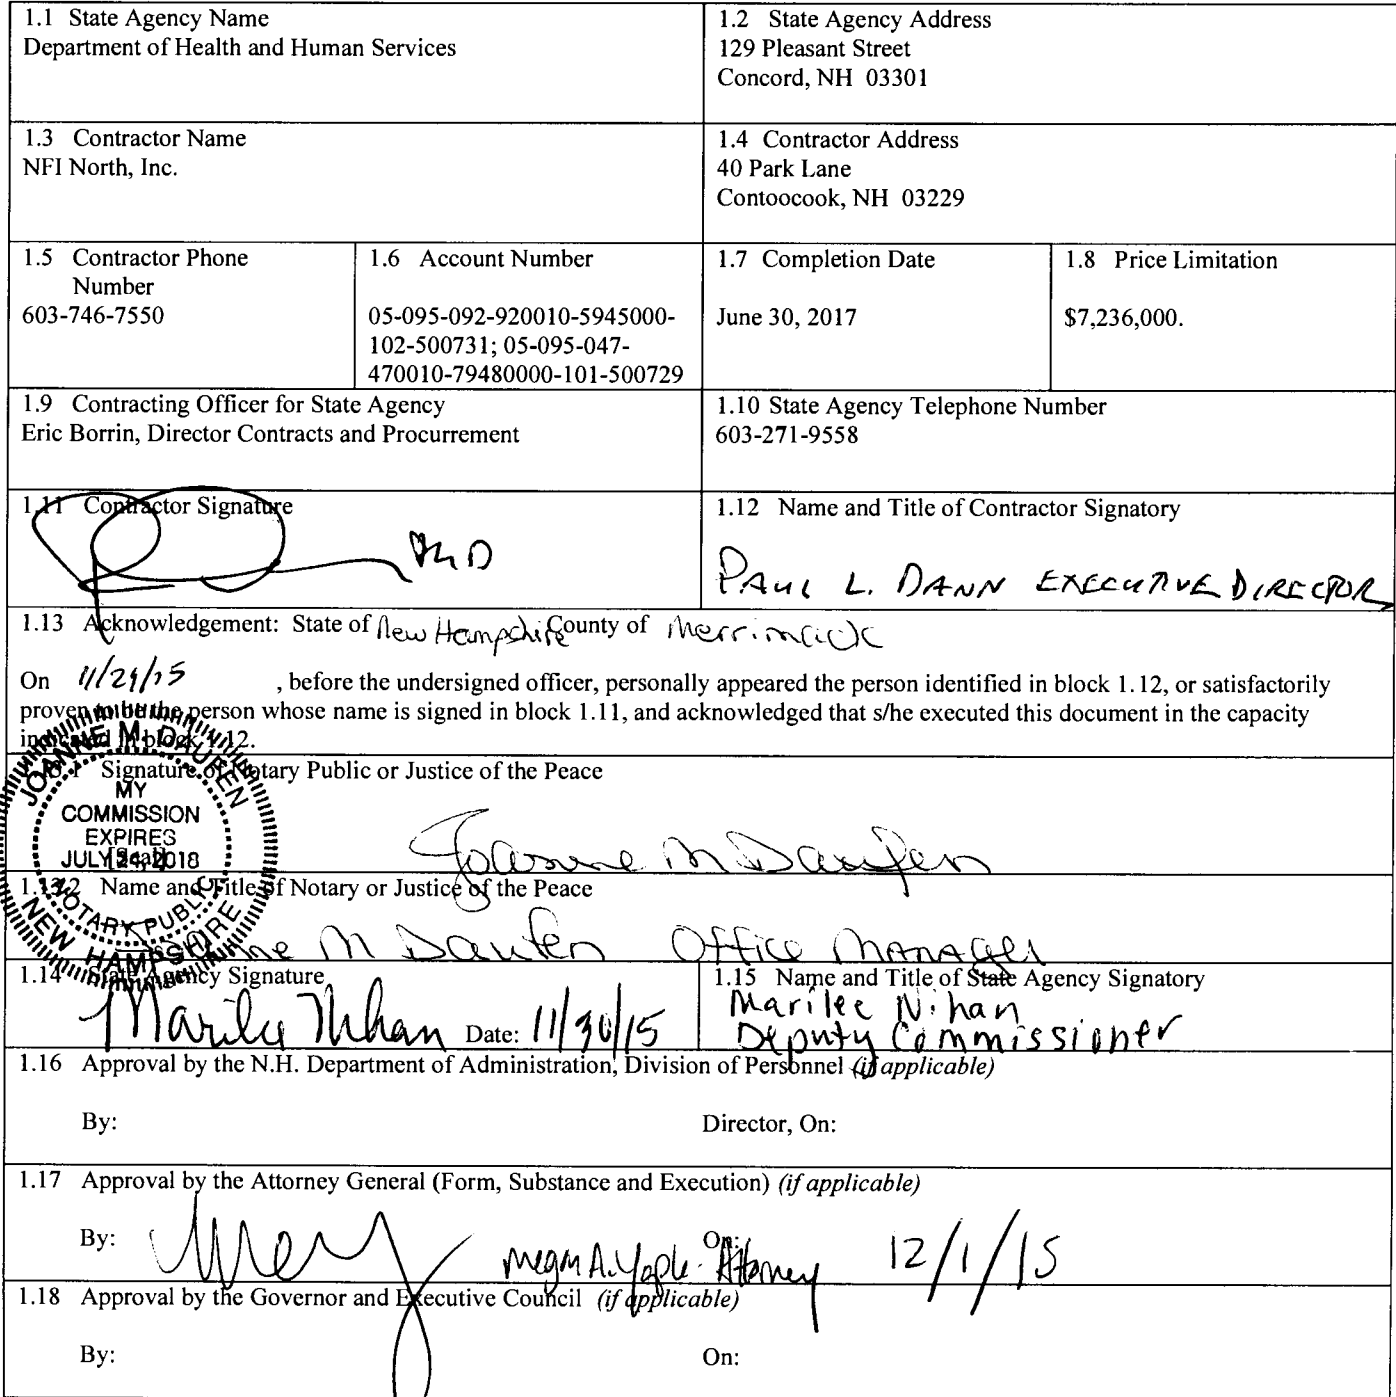 1.1 State Agency Name
Department of Health and Human Services
1.2 State Agency Address
129 Pleasant Street
Concord, NH 03301
1.3 Contractor Name
NFI North, Inc.
1.4 Contractor Address
40 Park Lane
Contoocook, NH 03229
1.5 Contractor Phone
Number
603-746-7550
1.6 Account Number
05-095-092-920010-5945000-
102-500731; 05-095-047-
470010-79480000-101-500729
1.7 Completion Date
June 30, 2017
1.8 Price Limitation
$7,236,000.
1.9 Contracting Officer for State Agency
Eric Borrin, Director Contracts and Procurrement
1.10 State Agency Telephone Number
603-271-9558
1.11 Contractor Signature
PhD
1.12 Name and Title of Contractor Signatory
PAUL L. DANN EXECUTIVE DIRECTOR
1.13 Acknowledgement: State of New Hampshire County of Merrimack
On 11/29/15 , before the undersigned officer, personally appeared the person identified in block 1.12, or satisfactorily
proven to be the person whose name is signed in block 1.11, and acknowledged that s/he executed this document in the capacity
indicated in block 1.12.
Signature of Notary Public or Justice of the Peace
JOANNE M. DAUFEN
MY
COMMISSION
EXPIRES
JULY 24, 2018
[Seal]
NOTARY PUBLIC
NEW HAMPSHIRE
Joanne M Daufen
1.13.2 Name and Title of Notary or Justice of the Peace
M Daufen Office Manager
1.14 State Agency Signature
Marilee Nihan Date: 11/30/15
1.15 Name and Title of State Agency Signatory
Marilee Nihan
Deputy Commissioner
1.16 Approval by the N.H. Department of Administration, Division of Personnel (if applicable)
By: Director, On:
1.17 Approval by the Attorney General (Form, Substance and Execution) (if applicable)
By: Megan A. Yaple - Attorney On: 12/1/15
1.18 Approval by the Governor and Executive Council (if applicable)
By: On: